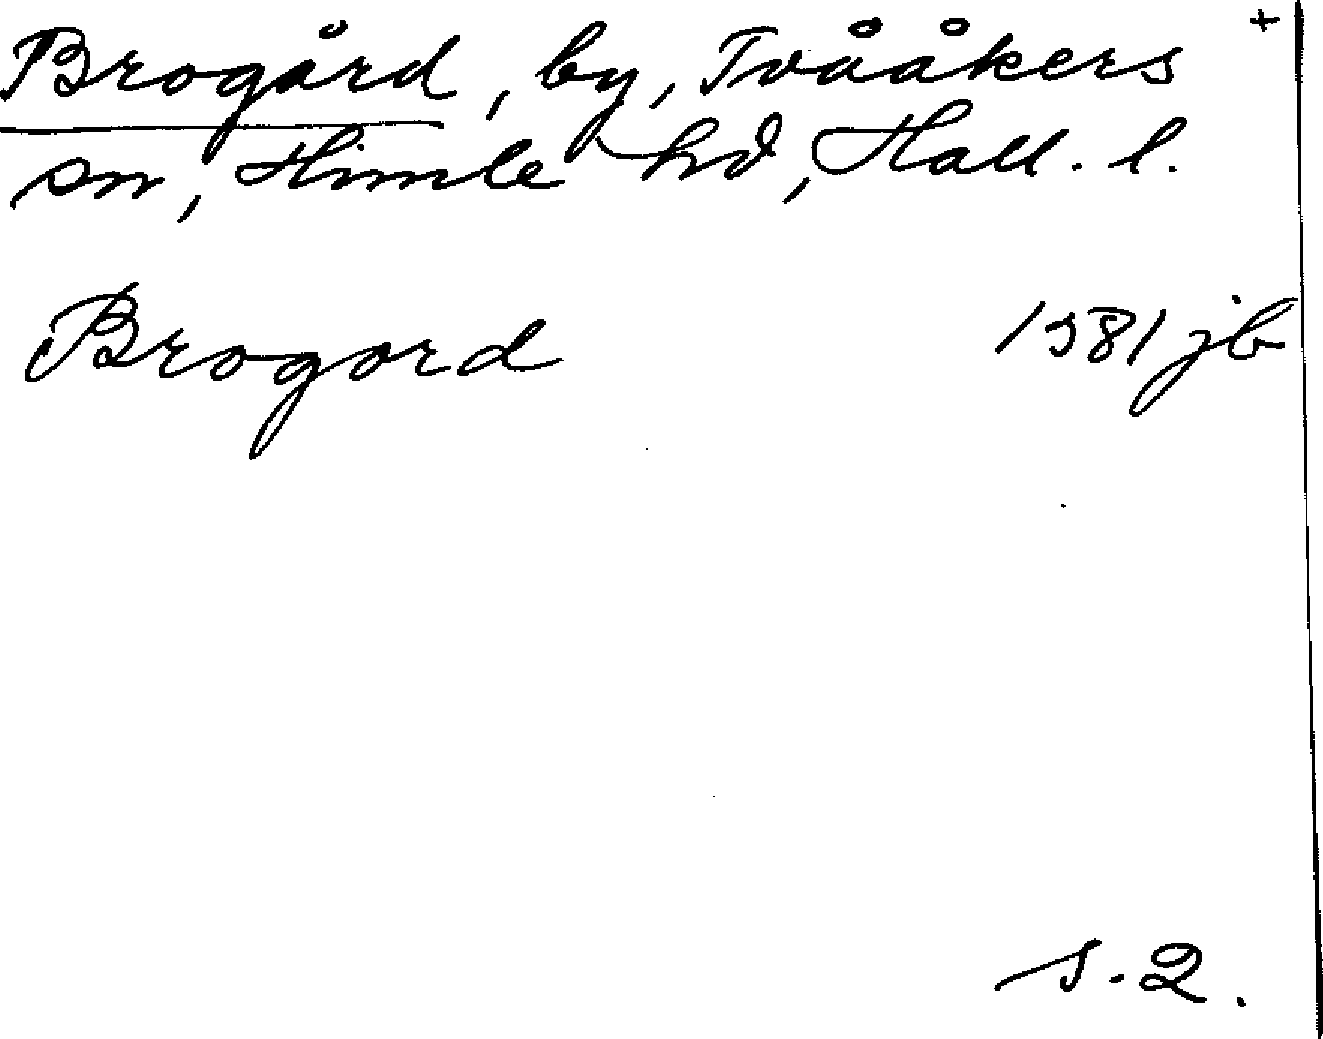 Brogård, by, Tvååkers +
sn, Himle hd, Hall. l.
Brogord 1581 jb
s. 2.